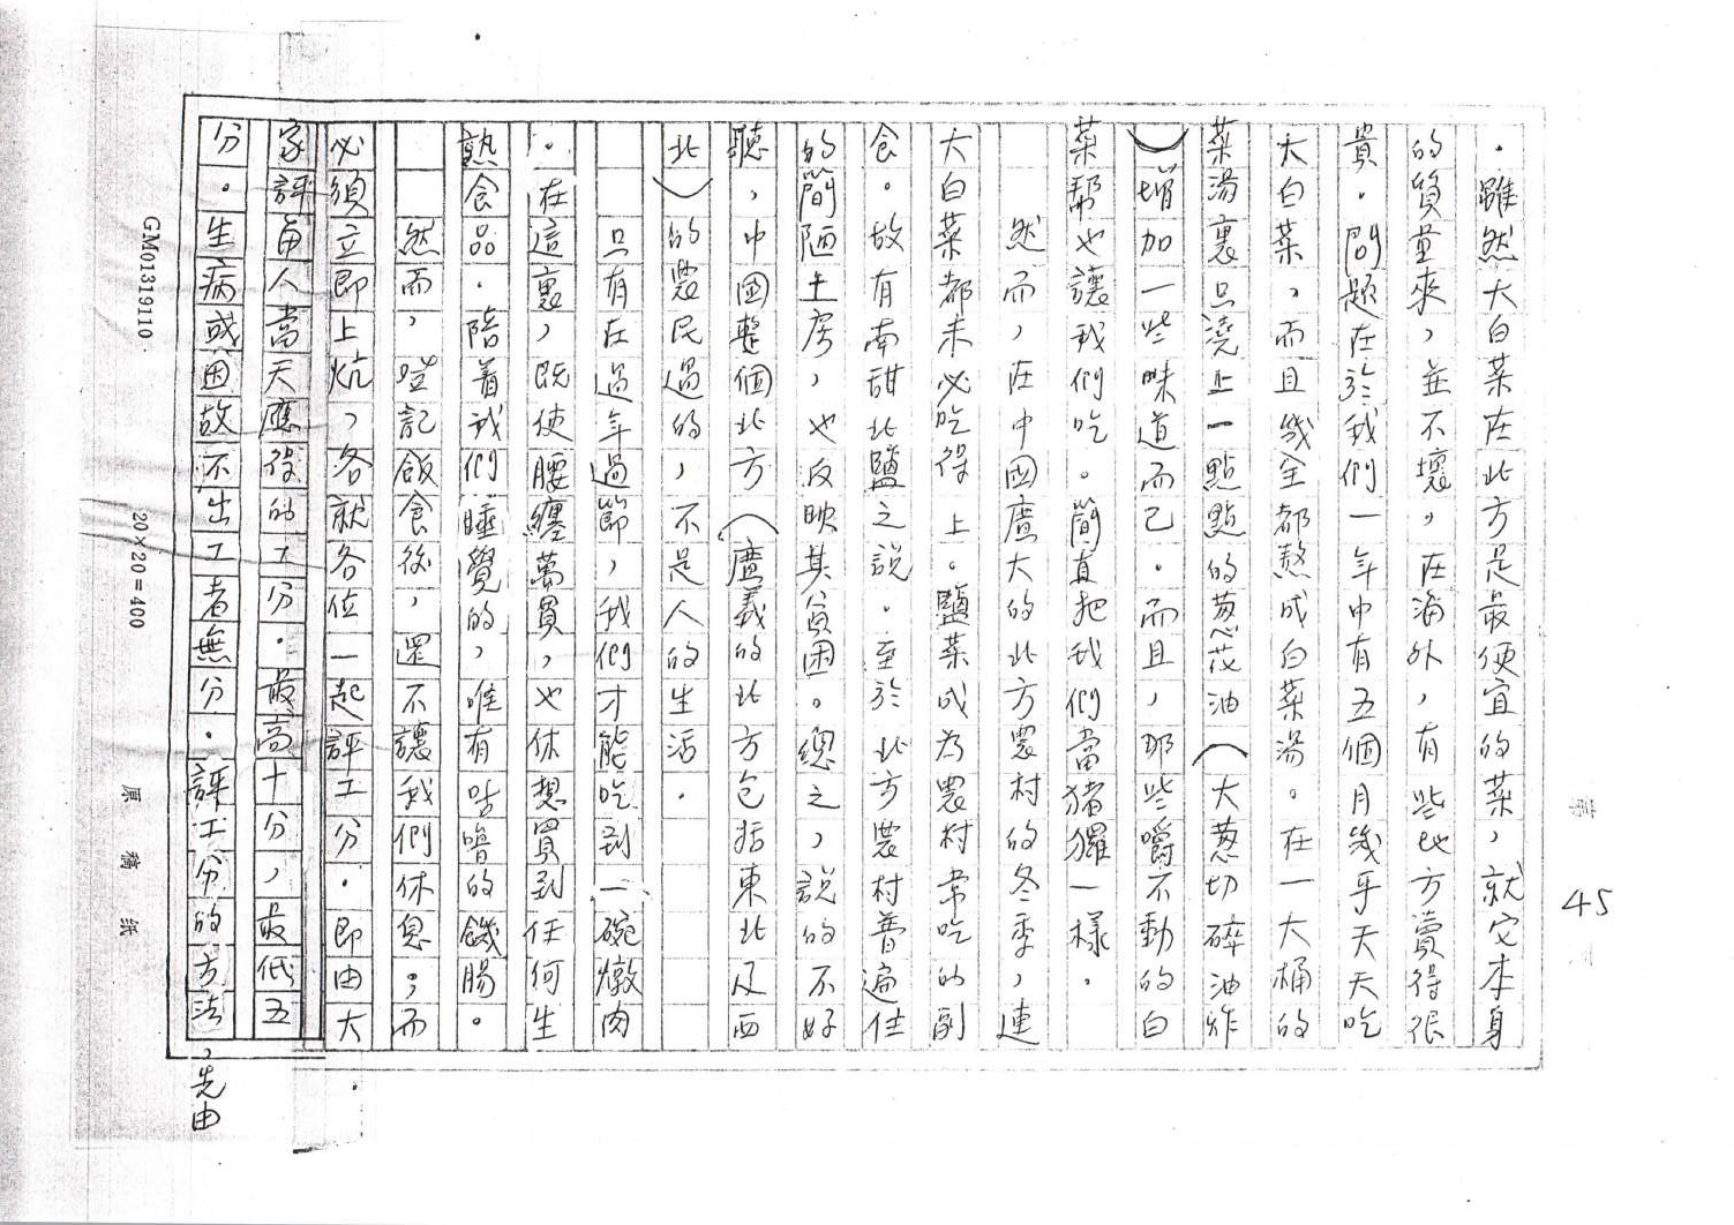 45
。雖然大白菜在北方是最便宜的菜，就它本身
的質量來，並不壞，在海外，有些地方賣得很
貴。問題在於我們一年中有五個月幾乎天天吃
大白菜，而且幾全都熬成白菜湯。在一大桶的
菜湯裏只澆上一點點的葱花油（大葱切碎油炸
）增加一些味道而已。而且，那些嚼不動的白
菜帮也讓我們吃。簡直把我們當猪玀一樣。
然而，在中國廣大的北方農村的冬季，連
大白菜都未必吃得上。鹽菜成為農村常吃的副
食。故有南甜北鹽之說。至於北方農村普遍住
的簡陋土房，也反映其貧困。總之，說的不好
聽，中國整個北方（廣義的北方包括東北及西
北）的農民過的，不是人的生活。
只有在過年過節，我們才能吃到一碗燉肉
。在這裏，既使腰纏萬貫，也休想買到任何生
熟食品。陪着我們睡覺的，唯有咕嚕的饑腸。
然而，噹記飯食後，還不讓我們休息；而
必須立即上炕，各就各位一起評工分。即由大
家評每人當天應得的工分。最高十分，最低五
分。生病或因故不出工者無分。評工分的方法，先由
GM01319110
20×20=400
原稿紙